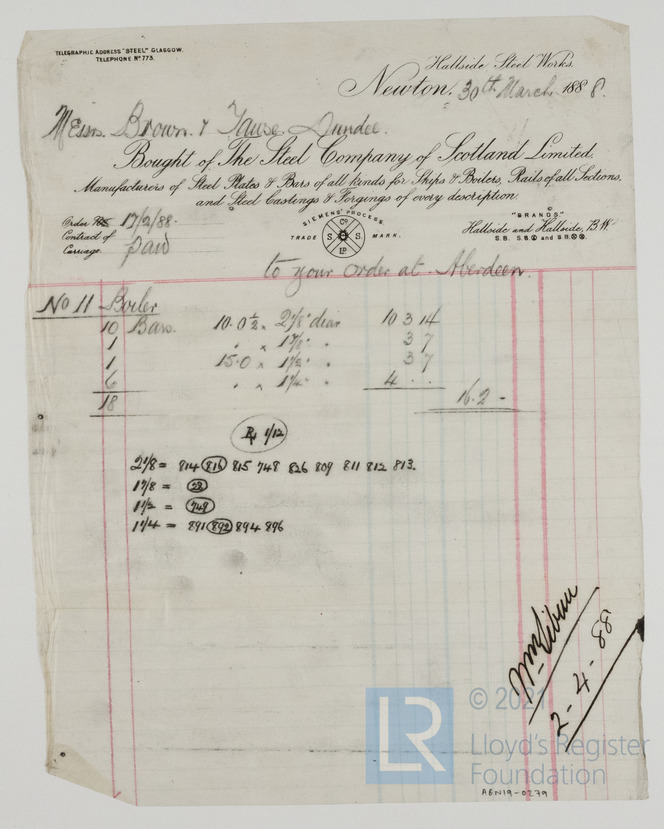 TELEGRAPHIC ADDRESS "STEEL" GLASGOW.
TELEPHONE No 773.
Hallside Steel Works.
Newton, 30th March 1888.
Messrs. Brown &
Dundee.
Bought of The Steel Company of Scotland Limited.
Manufacturers of Steel Plates & Bars of all kinds for Ships & Boilers, Rails of all Sections,
and Steel Castings & Forgings of every description.
Order 17/2/88
Contract of
Carriage paid
SIEMENS' PROCESS.
TRADE MARK.
Co
S S
LD
"BRANDS"
Hallside and Hallside, B.W.
to your order at Aberdeen.
No 11 Boiler
10 Bars. 10.0½ x 2⅛" diar 10 3 14
1 " x 1⅞" " 3 7
1 15.0 x 1½" " 3 7
6 " x 1¼" " 4 . .
18 16.2 -
1/12
2 1/8 = 814 816 815 748 826 809 811 812 813.
1 7/8 = 23
1 1/2 = 749
1 1/4 = 891 892 894 896
2-4-88
LR
© 2021
Lloyd's Register
Foundation
ABN19-0279